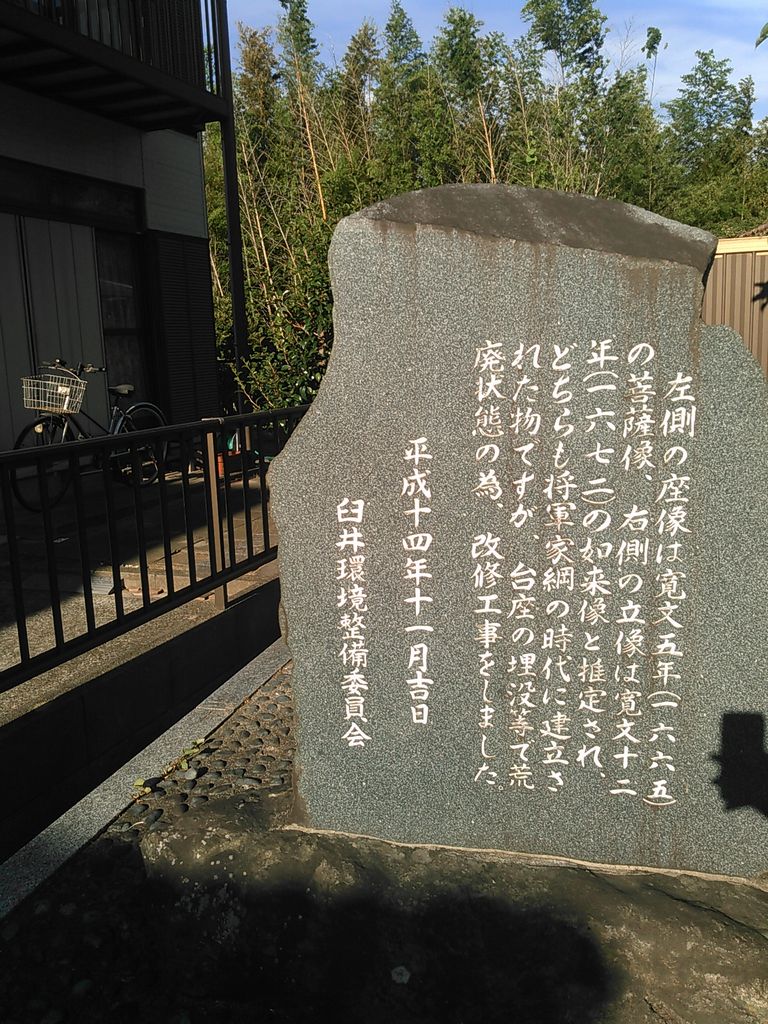 左側の座像は寛文五年(一六六五)
の菩薩像、右側の立像は寛文十二
年(一六七二)の如来像と推定され、
どちらも将軍家綱の時代に建立さ
れた物ですが、台座の埋没等で荒
廃状態の為、改修工事をしました。
平成十四年十一月吉日
臼井環境整備委員会